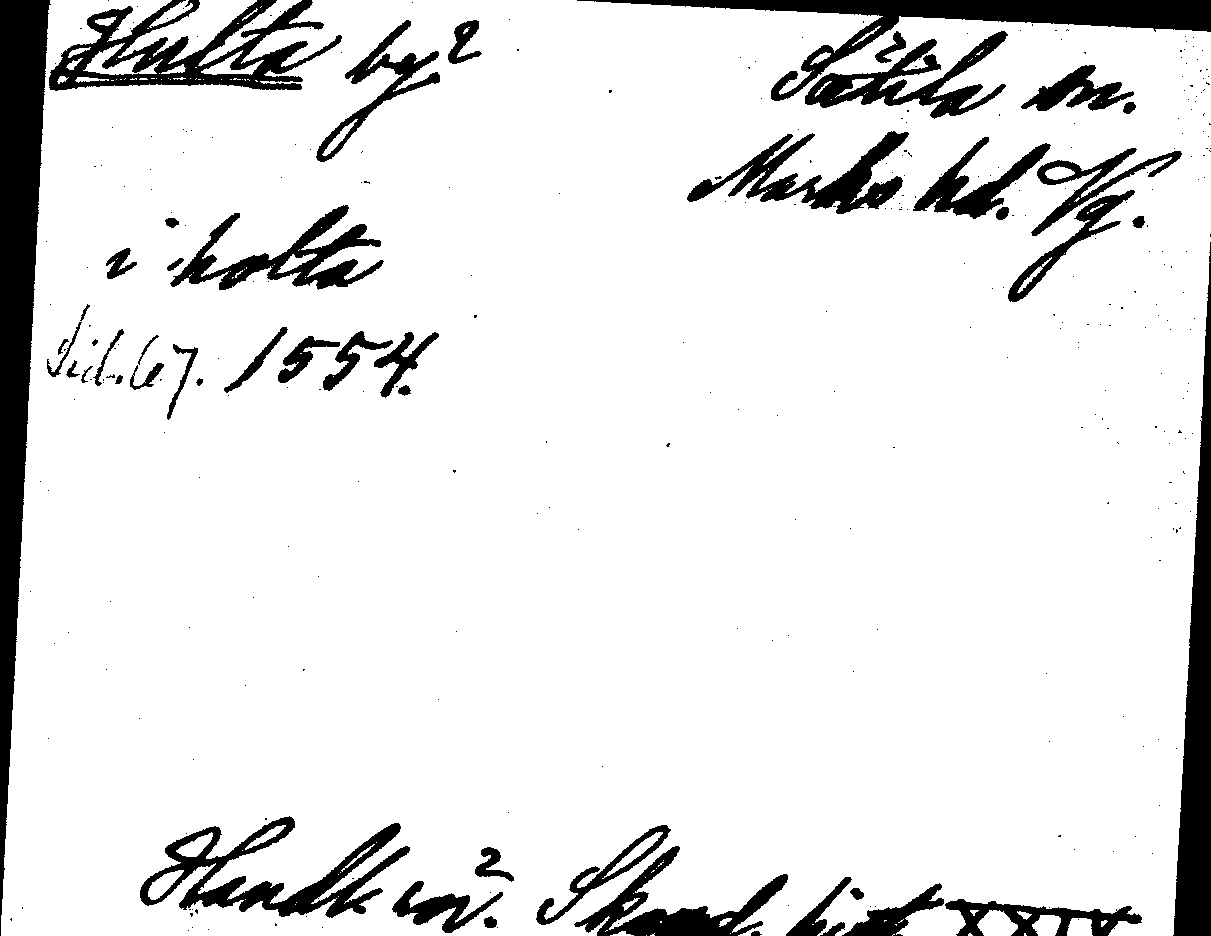 Hulta by.
Sätila sn.
Marks hd. Vg.
i holta
Sid. 67. 1554.
Handl. rör. Skand. hist XXIV